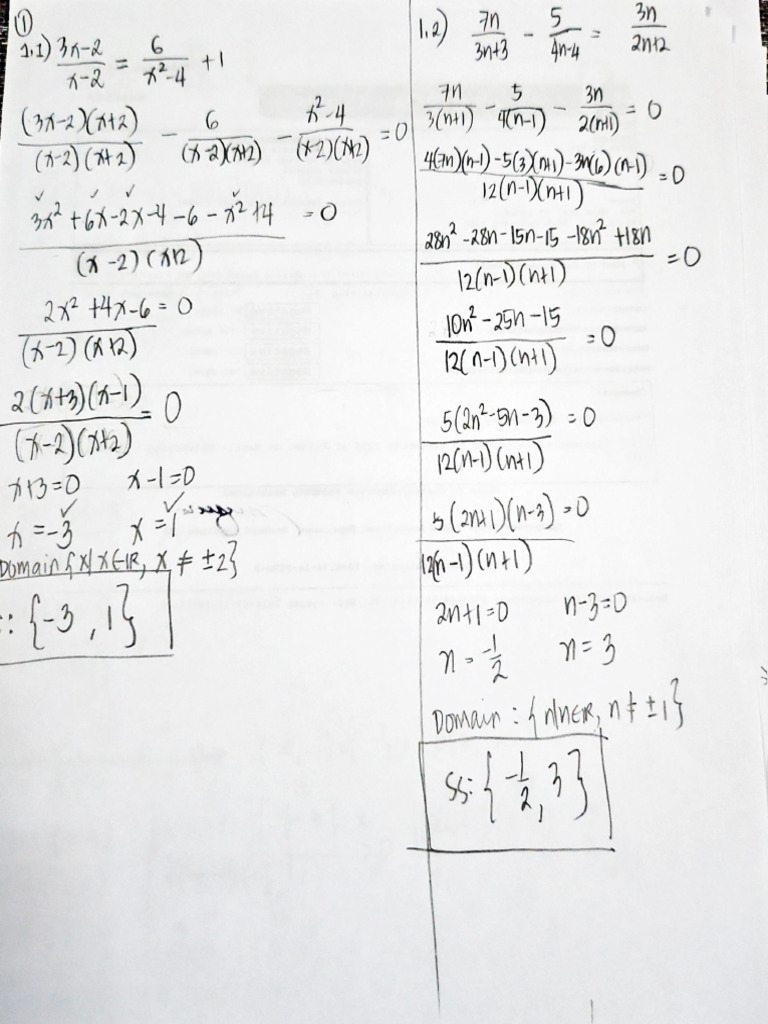 ①
1.1) (3x-2)/(x-2) = 6/(x²-4) + 1
((3x-2)(x+2))/((x-2)(x+2)) - 6/((x-2)(x+2)) - (x²-4)/((x-2)(x+2)) = 0
(3x² + 6x - 2x - 4 - 6 - x² + 4)/((x-2)(x+2)) = 0
(2x² + 4x - 6)/((x-2)(x+2)) = 0
(2(x+3)(x-1))/((x-2)(x+2)) = 0
x+3=0 x-1=0
x = -3 x = 1
Domain {x|x∈IR, x ≠ ±2}
: {-3, 1}
1.2) 7n/(3n+3) - 5/(4n-4) = 3n/(2n+2)
7n/(3(n+1)) - 5/(4(n-1)) - 3n/(2(n+1)) = 0
(4(7n)(n-1) - 5(3)(n+1) - 3n(6)(n-1))/(12(n-1)(n+1)) = 0
(28n² - 28n - 15n - 15 - 18n² + 18n)/(12(n-1)(n+1)) = 0
(10n² - 25n - 15)/(12(n-1)(n+1)) = 0
(5(2n² - 5n - 3))/(12(n-1)(n+1)) = 0
(5(2n+1)(n-3))/(12(n-1)(n+1)) = 0
2n+1=0 n-3=0
n = -1/2 n = 3
Domain : {n|n∈IR, n ≠ ±1}
SS: {-1/2, 3}